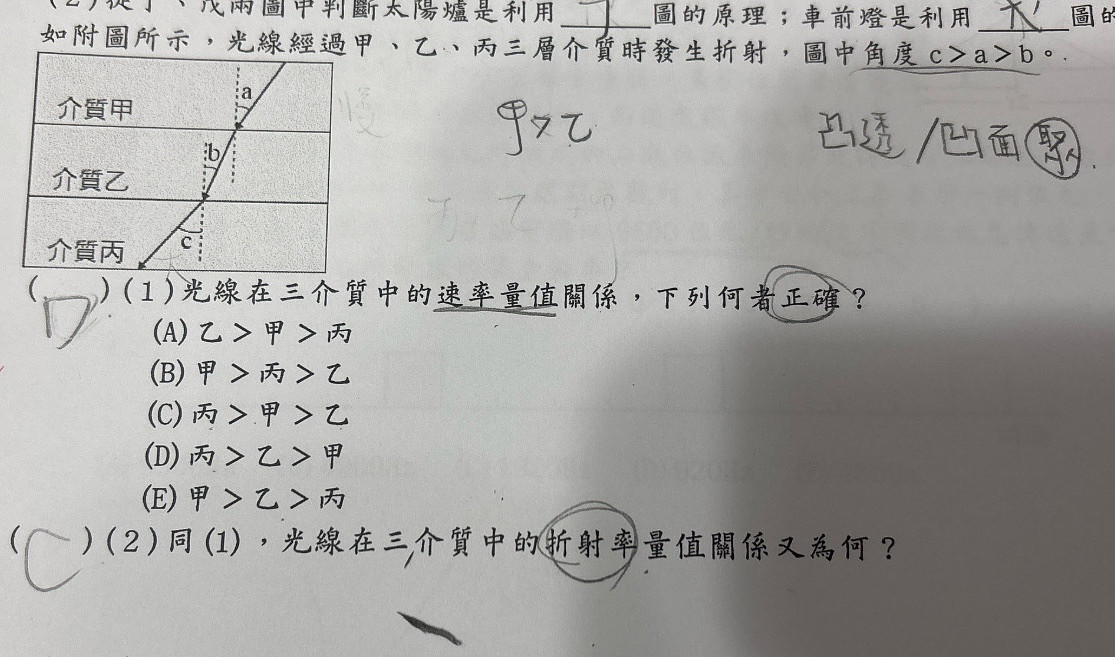 (2)從丁、戊兩圖中判斷太陽爐是利用 丁 圖的原理；車前燈是利用 戊 圖的
如附圖所示，光線經過甲、乙、丙三層介質時發生折射，圖中角度 c＞a＞b。
介質甲
a
甲>乙
凸透/凹面 聚
b
介質乙
c
介質丙
( D )(1)光線在三介質中的速率量值關係，下列何者正確？
(A)乙＞甲＞丙
(B)甲＞丙＞乙
(C)丙＞甲＞乙
(D)丙＞乙＞甲
(E)甲＞乙＞丙
( C )(2)同(1)，光線在三介質中的折射率量值關係又為何？